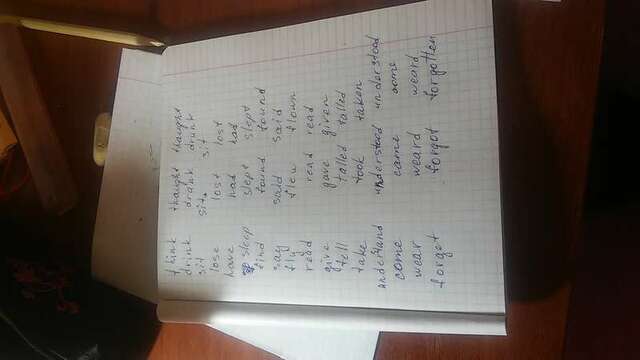 think thought thought
drink drank drunk
sit sit sit
lose lost lost
have had had
sleep slept slept
find found found
say said said
fly flew flown
read read read
give gave given
tell talled talled
take took taken
understand understood understood
come came come
wear weard weard
forget forgot forgotten